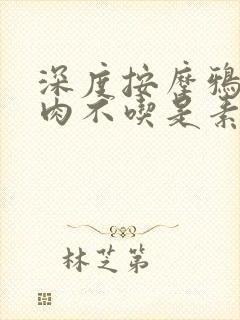 深度按摩鴉
肉不喫是素
林芝第